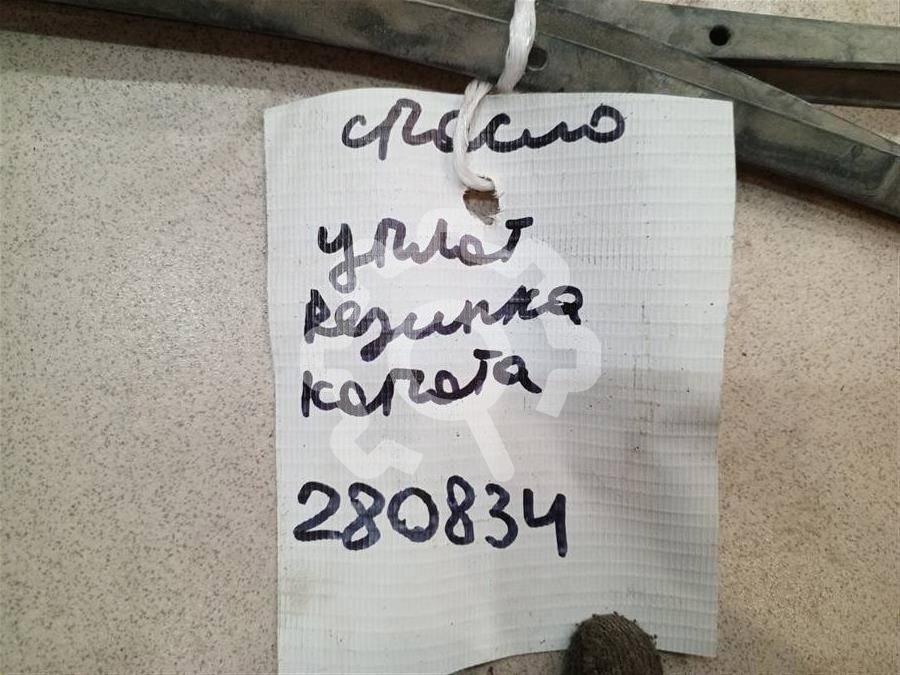 спасио
уплот
резинка
капота
280834